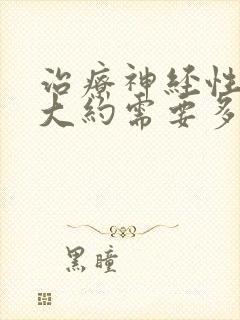 治療神经性
大約需要多
黑瞳